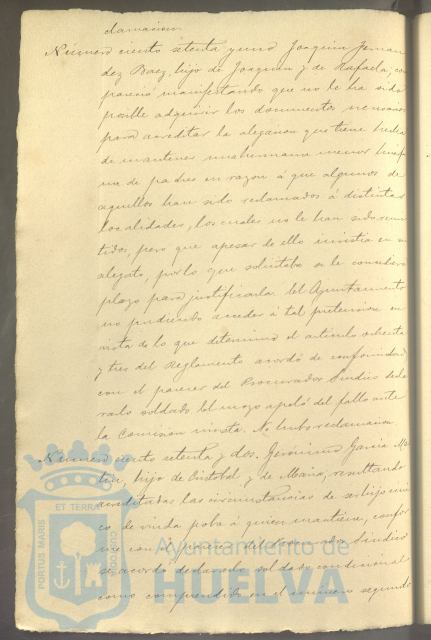 clamacion.
Número ciento setenta y uno Joaquin Fernan
dez Baez, hijo de Joaquin y de Rafaela, com
pareció manifestando que no le ha sido
posible adquirir los documentos necesarios
para acreditar la alegacion que tiene hecha
de mantener una hermana menor huerfa
na de padres en razon á que algunos de
aquellos han sido reclamados á distintas
localidades, los cuales no le han sido remi
tidos, pero que apesar de ello insistia en su
alegato, por lo que solicitaba se le concediera
plazo para justificarla. El Ayuntamiento
no pudiendo acceder á tal pretension en
vista de lo que determina el articulo ochenta
y tres del Reglamento acordó de conformidad
con el parecer del Procurador Sindico decla
rarlo soldado. El mozo apeló del fallo ante
la Comision mixta. No hubo reclamacion.
Número ciento setenta y dos. Geronimo Garcia
hijo de Cristobal y de Maria, resultando
acreditadas las circunstancias de ser hijo uni
co de viuda pobre á quien mantiene, confor
me con el parecer del Procurador Sindico
se acordó declararlo soldado condicional
como comprendido en el número segundo
PORTUS MARIS ET TERRAE CUSTODIO
Ayuntamiento de
HUELVA